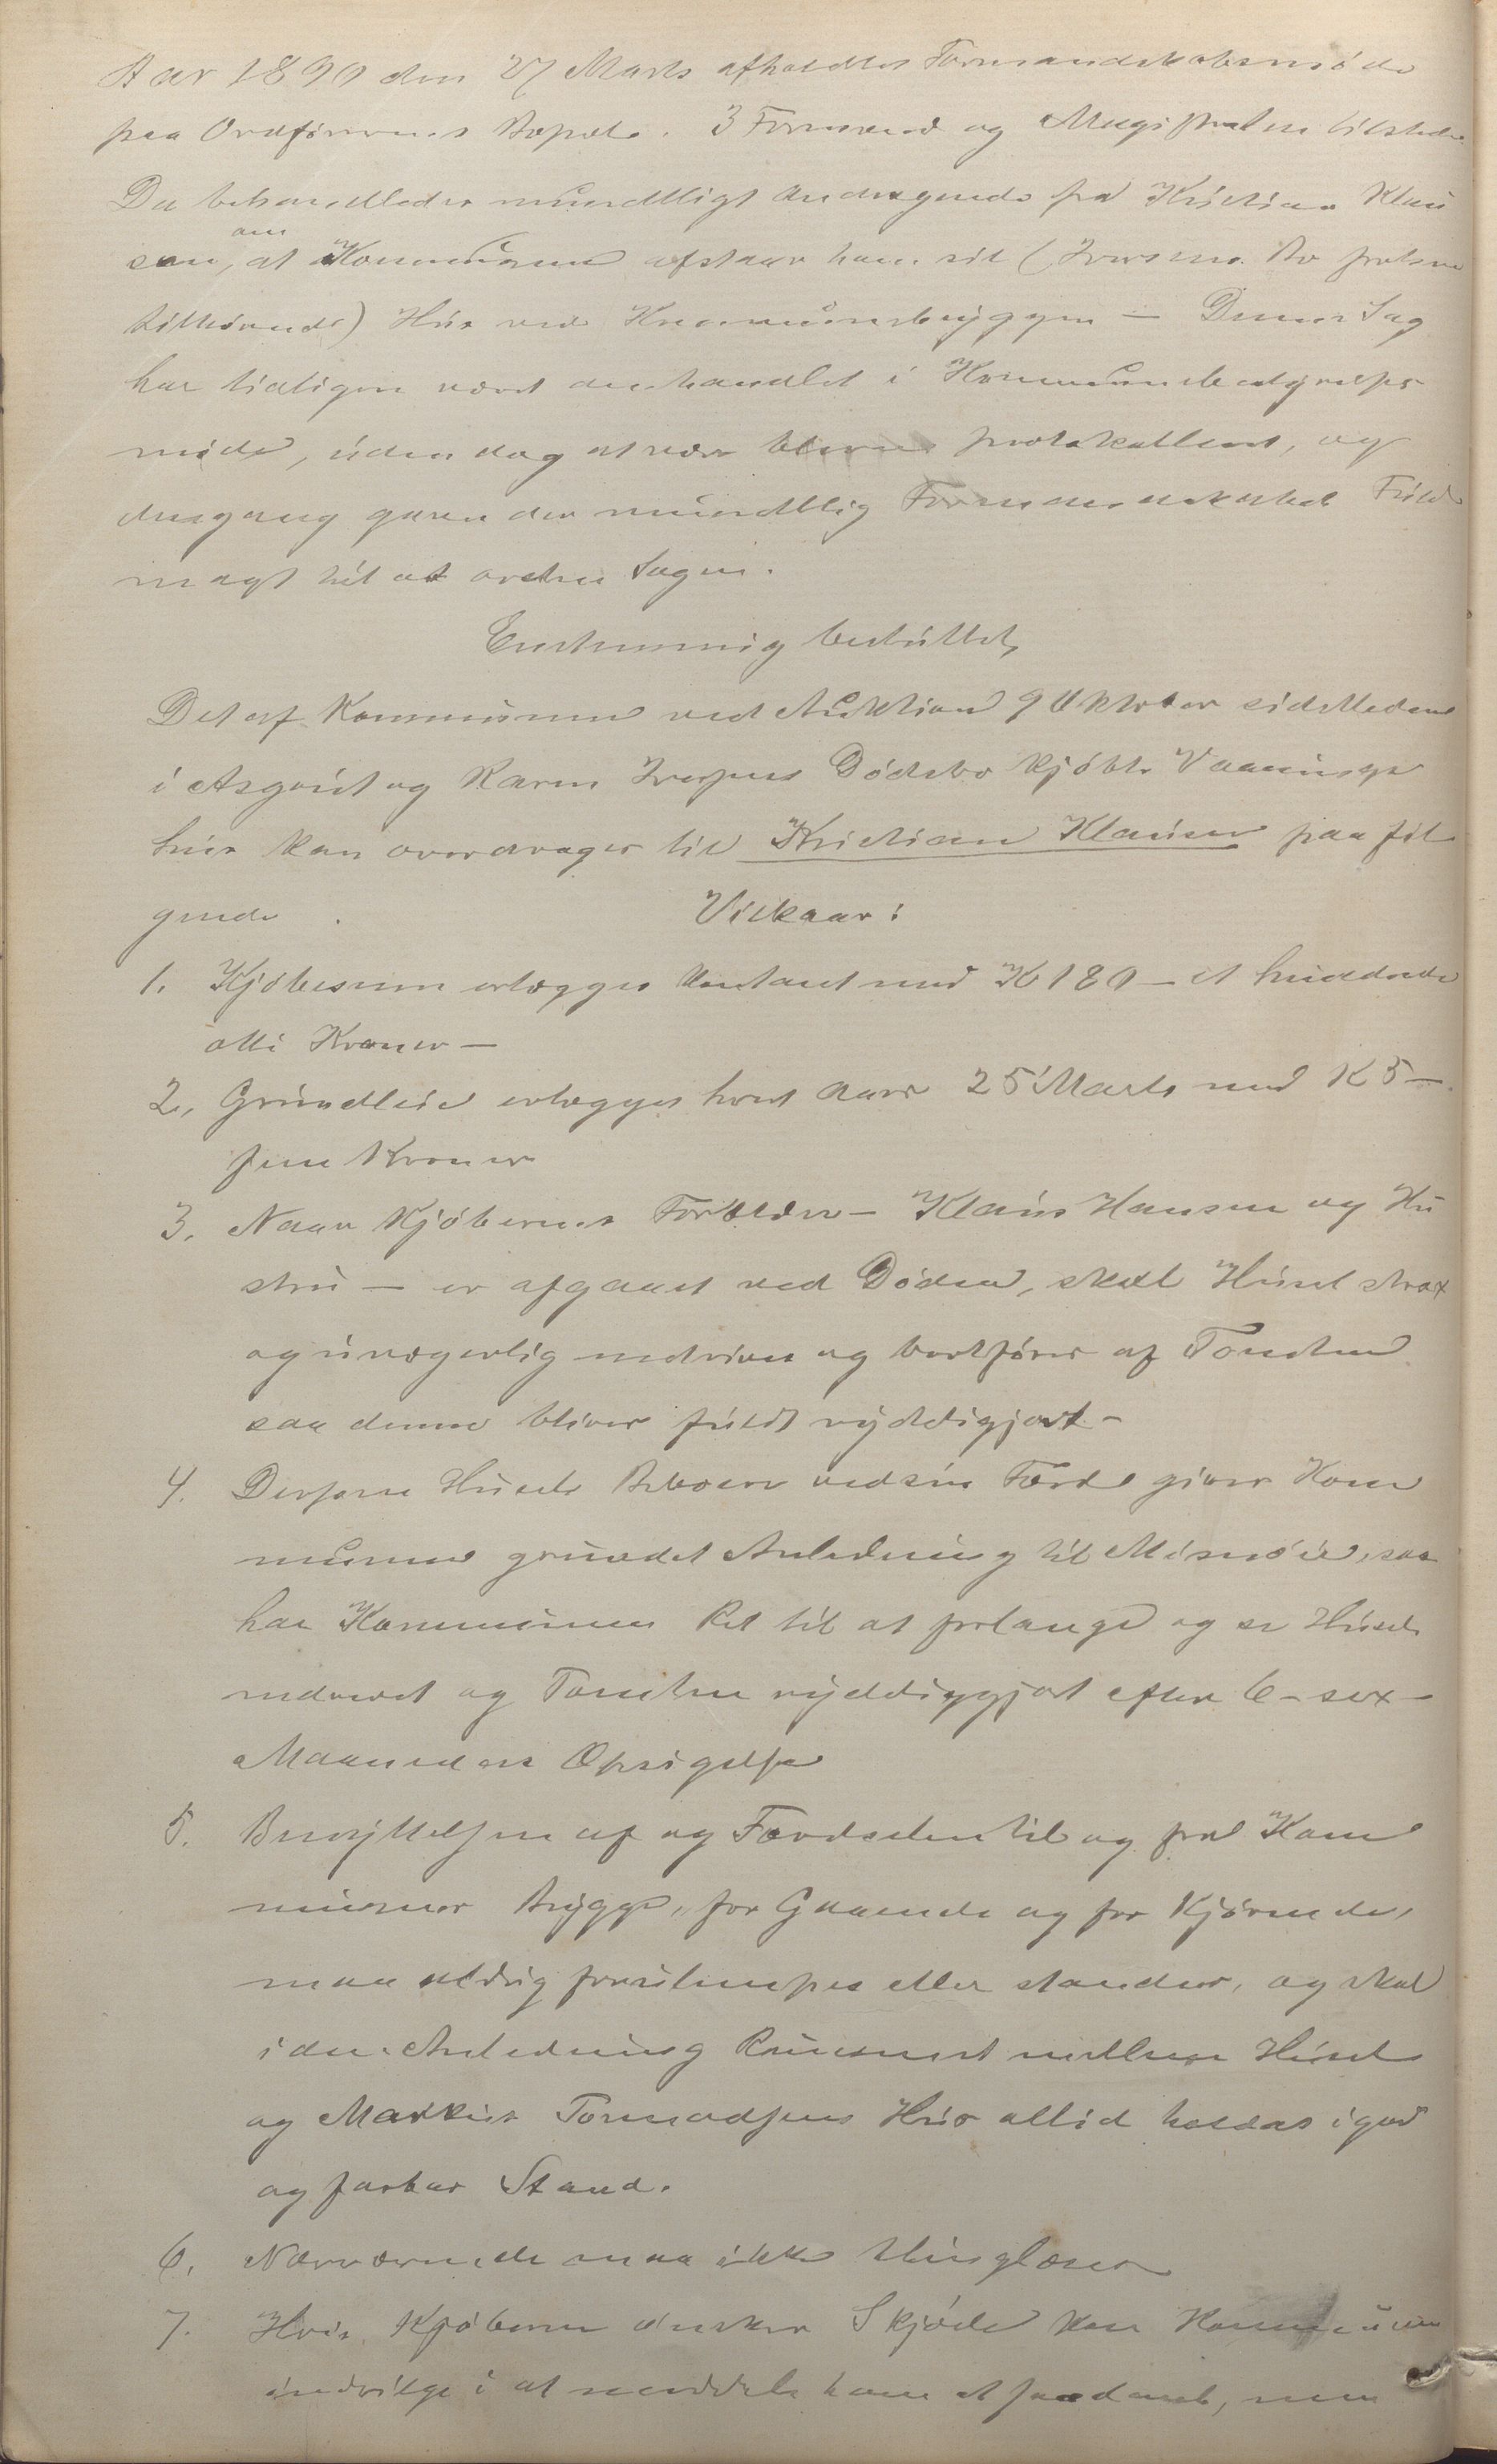 Aar 1890 den 27 Marts afholdtes Formandskabsmøde
paa Ordførerens Bopæl. 3 Formænd og Magistraten tilstede
Da behandledes mundtligt Andragende fra Kristian Klau
sen, om at Kommunen afstaar ham sit (Iversens Bo
tilhørende) Hus ved Kommunebryggen — Denne Sag
har tidligere været behandlet i Kommunebestyrelses
møde, uden dog at være bleven protokolleret, og
dengang gaven der mundtlig Formandskabet Fuld
magt til at ordne Sagen.
Enstemmig besluttet,
Det af Kommunen ved Auktion 9 Oktober sidstleden
i Asgout og Karen Iversens Dødsbo kjøbte Vaanings
hus kan overdrages til Kristian Klausen paa føl
gende Vilkaar:
1. Kjøbesum erlægges kontant med K 180 — et hundrede
otti Kroner —
2, Grundleie erlægges hvert Aars 25 Marts med K 5 —
fem Kroner
3. Naar Kjøberens Forældre — Klaus Hansen og Hu
stru — er afgaaet ved Døden, skal Huset strax
og uvægerlig nedrives og bortføres af Tomten
saa denne bliver fuldt ryddigjort —
4. Dersom Husets Beboere ved sin Færd giver Kom
munen grundet Anledning til Misnøie, saa
har Kommunen Ret til at forlange og se Huset
nedrevet og Tomten ryddiggjort efter 6 — sex —
Maaneders Opsigelse
5. Benyttelsen af og Færdselen til og fra Kom
munens Brygge, for Gaaende og for Kjørende,
maa aldrig forulempes eller standses, og skal
i den Anledning Rummet mellem Huset
og Markus Tormodsens Hus altid holdes i god
og farbar Stand.
6. Nærværende maa ikke thinglæses
7. Hvis Kjøberen ønsker Skjøde kan Kommunen
indvilge i at meddele ham et saadant, men